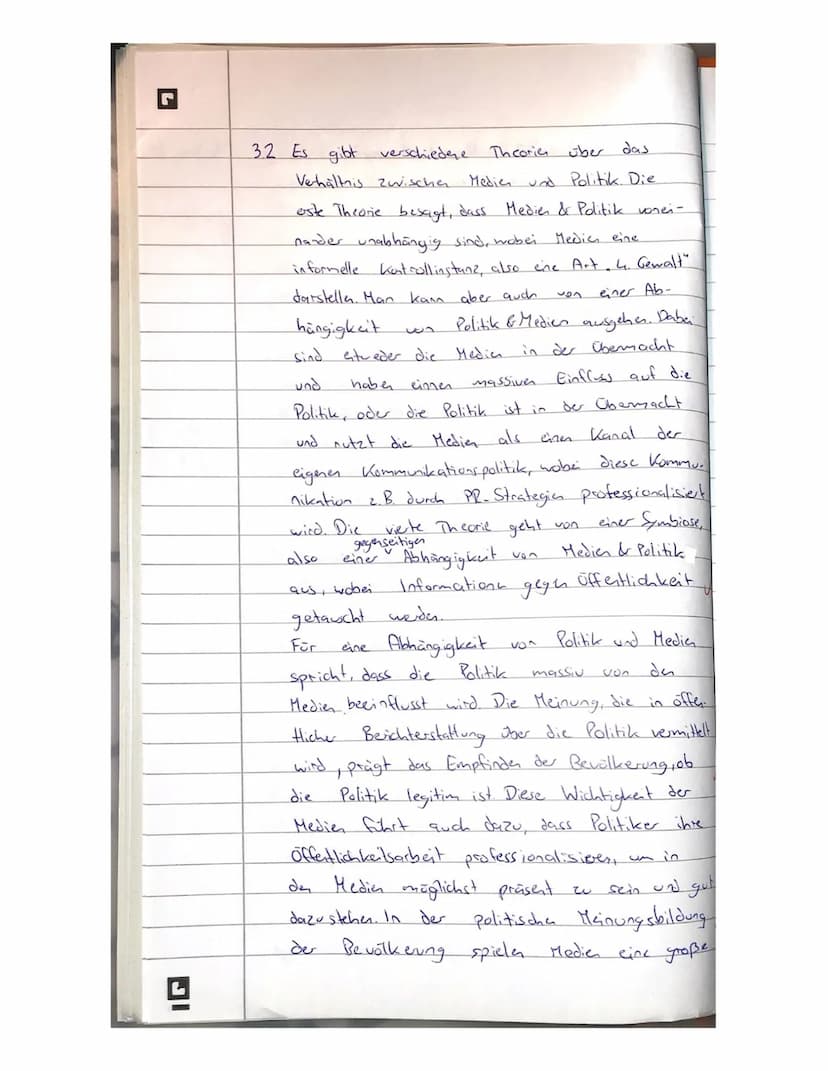 3.2 Es gibt verschiedene Theorien über das
Verhältnis zwischen Medien und Politik. Die
erste Theorie besagt, dass Medien & Politik vonei-
nander unabhängig sind, wobei Medien eine
informelle Kontrollinstanz, also eine Art „4. Gewalt"
darstellen. Man kann aber auch von einer Ab-
hängigkeit von Politik & Medien ausgehen. Dabei
sind entweder die Medien in der Übermacht
und haben einen massiven Einfluss auf die
Politik, oder die Politik ist in der Übermacht
und nutzt die Medien als einen Kanal der
eigenen Kommunikationspolitik, wobei diese Kommu-
nikation z.B. durch PR-Strategien professionalisiert
wird. Die vierte Theorie geht von einer Symbiose,
also einer gegenseitigen Abhängigkeit von Medien & Politik
aus, wobei Informationen gegen Öffentlichkeit
getauscht werden.
Für eine Abhängigkeit von Politik und Medien
spricht, dass die Politik massiv von den
Medien beeinflusst wird. Die Meinung, die in öffen-
tlicher Berichterstattung über die Politik vermittelt
wird, prägt das Empfinden der Bevölkerung, ob
die Politik legitim ist. Diese Wichtigkeit der
Medien führt auch dazu, dass Politiker ihre
Öffentlichkeitsarbeit professionalisieren, um in
den Medien möglichst präsent zu sein und gut
dazustehen. In der politischen Meinungsbildung
der Bevölkerung spielen Medien eine große